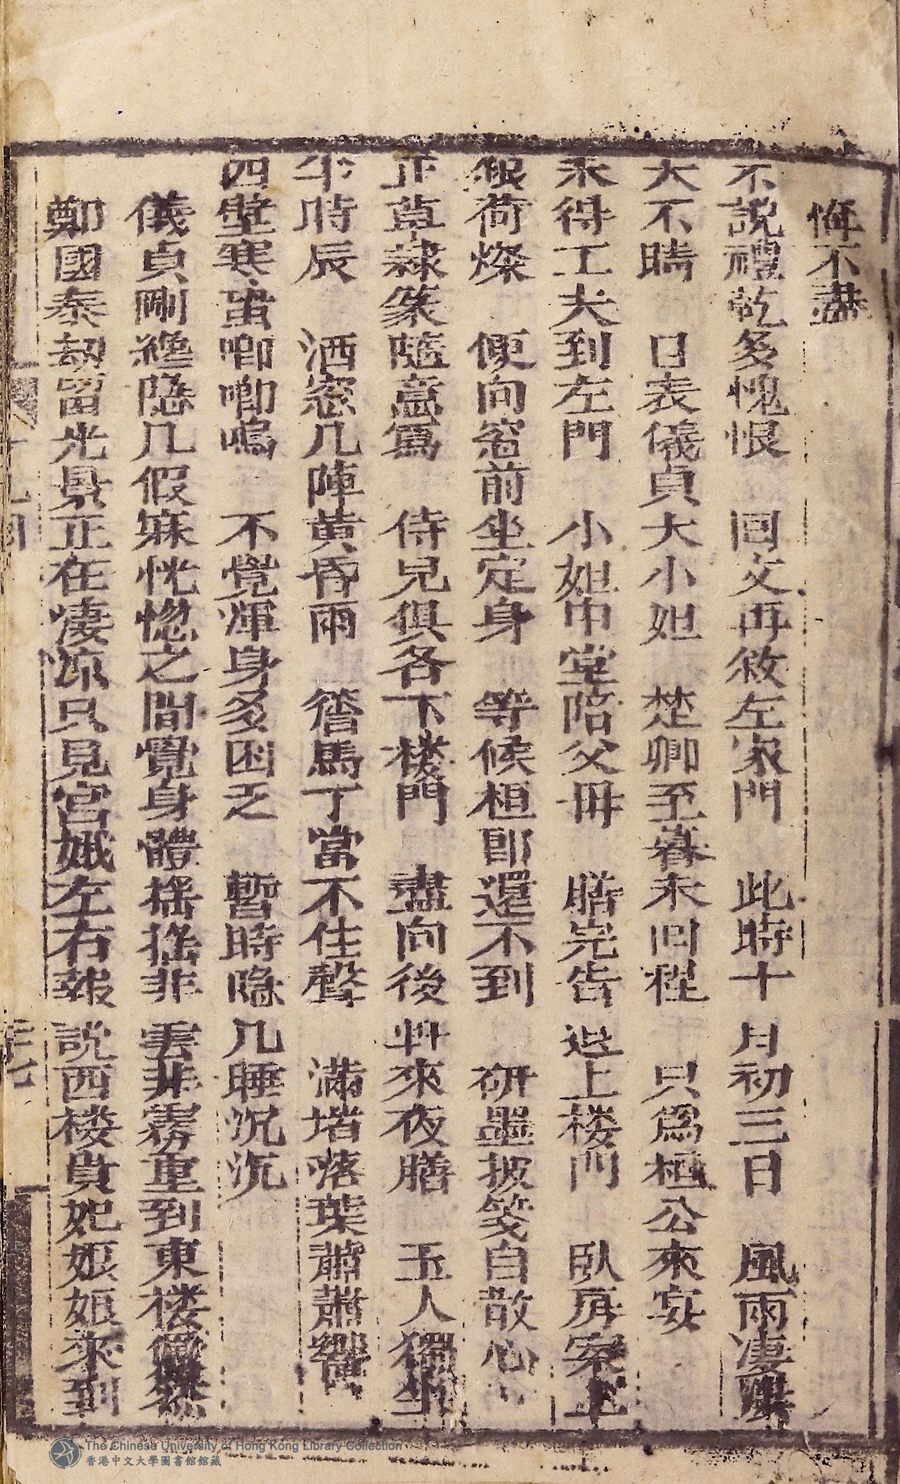 悔不盡
不說禮乾多愧恨　回文再敘左家門　此時十月初三日　風雨凄
大不晴　日表儀貞大小姐　楚卿至暮未回程　只為桓公來宴
未得工夫到左門　小姐中堂陪父母　膳完告退上楼門　臥房案上
銀荷燦　便向窓前坐定身　等候桓郎還不到　研墨披箋自散心
正草隸篆隨意寫　侍兒俱各下楼門　盡向後廾來夜膳　玉人獨坐
半時辰　洒窓几陣黃昏雨　簷馬丁當不住聲　滿堦落葉蕭蕭響
四壁寒蛩唧唧鳴　不覺渾身多困乏　暫時隐几睡沉沉
儀貞剛纔隐几假寐恍惚之間覺身體摇摇非雲非霧重到東楼
鄭國泰刧留光景正在淒凉只見宮娥左右報說西楼貴妃娘娘來到
十九回
三七
The Chinese University of Hong Kong Library Collection
香港中文大學圖書館館藏